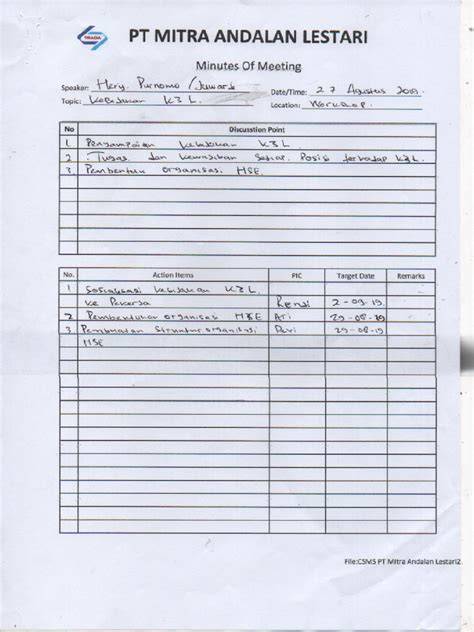 PT MITRA ANDALAN LESTARI
Minutes Of Meeting
Speaker: Hery Purnomo /
Date/Time: 27 Agustus 2019
Topic: Kebijakan K3L.
Location: Workshop.
No Discussion Point
1 Penyampaian Kebijakan K3L
2 Tugas dan Kewajiban Setiap Posisi terhadap K3L.
3 Pembentukan organisasi HSE.
No. Action Items PIC Target Date Remarks
1 Sosialisasi Kebijakan K3L.
ke Pekerja 2-09-19
2 Pembentukan organisasi HSE Ari 29-08-19
3 Pembuatan Struktur organisasi 29-08-19
HSE
File:CSMS PT Mitra Andalan Lestari2